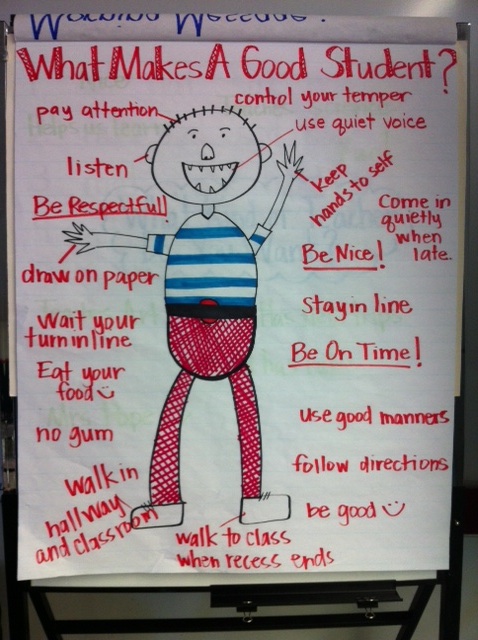 Morning Message:
What Makes A Good Student?
pay attention
control your temper
use quiet voice
listen
keep
hands to self
Be Respectful!
Come in
quietly
when
late.
Be Nice!
draw on paper
Stay in line
Wait your
turn in line
Be On Time!
Eat your
food
use good manners
no gum
follow directions
walk in
hallway
and classroom
be good
walk to class
when recess ends